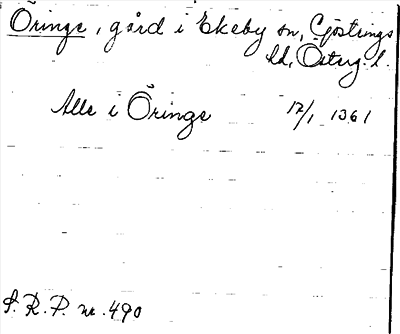 Öringe, gård i Ekeby sn, Göstrings
hd, Österg. l.
Alle i Öringe 17/1 1361
S.R.P. nr. 490